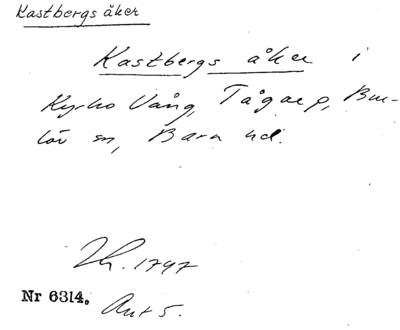 Kastbergs åker
Kastbergs åker i
Kyrko Vång, Tågarp, Bur-
löv sn, Bara hd.
Lh. 1747
Nr 6314.
Akt 5.